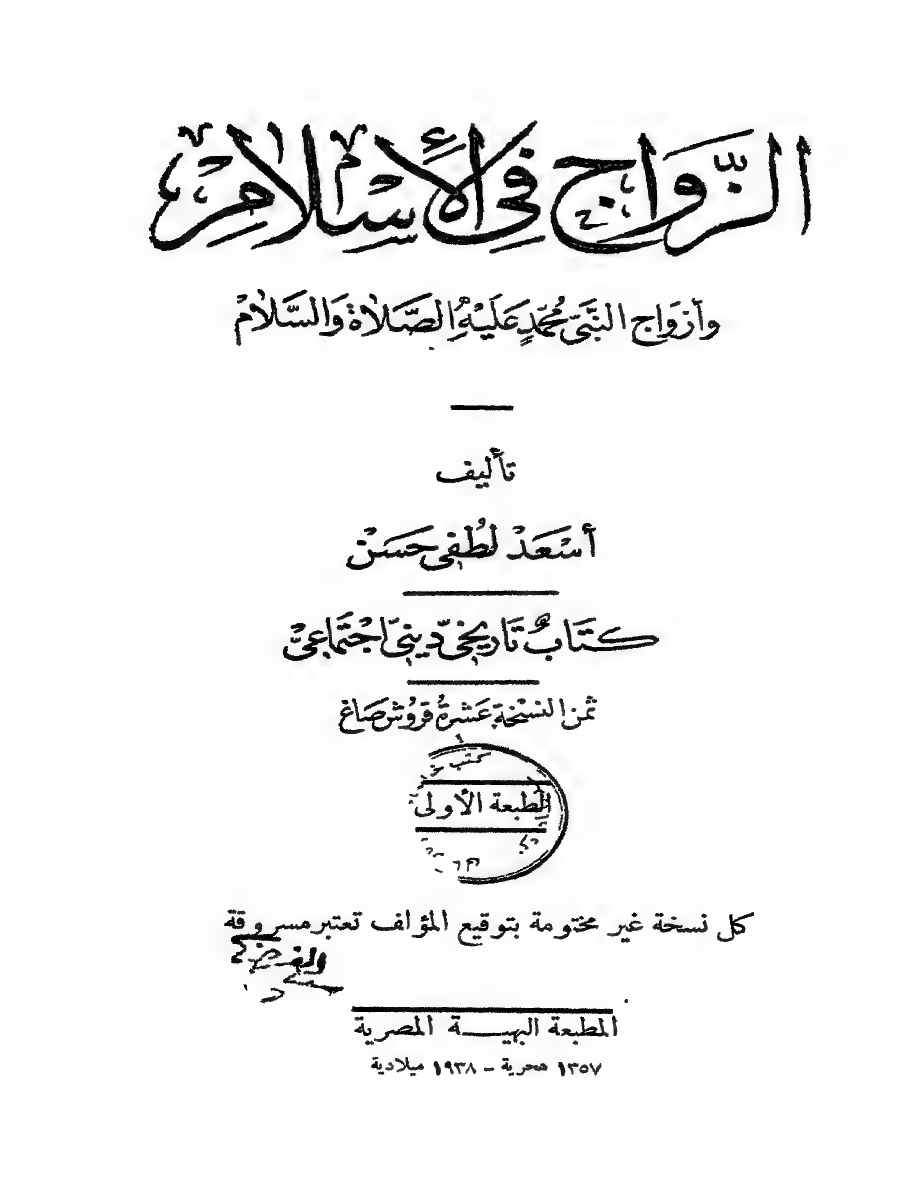 الزَّوَاج فِي الْإِسْلَام
وَأَزْوَاج النَّبِيّ مُحَمَّدٍ عَلَيْهِ الصَّلَاة وَالسَّلَام
تأليف
أسْعَدْ لُطْفِي حَسَنْ
كِتَابٌ تَاريخِيّ دِينيّ اجْتِمَاعيّ
ثمن النسْخَة عَشرَةُ قرُوُش صَاغ
كتب
الطبعة الأولى
كل نسخة غير مختومة بتوقيع المؤلف تعتبر مسروقة
المطبعة البهيـــــة المصرية
١٣٥٧ هجرية – ١٩٣٨ ميلادية